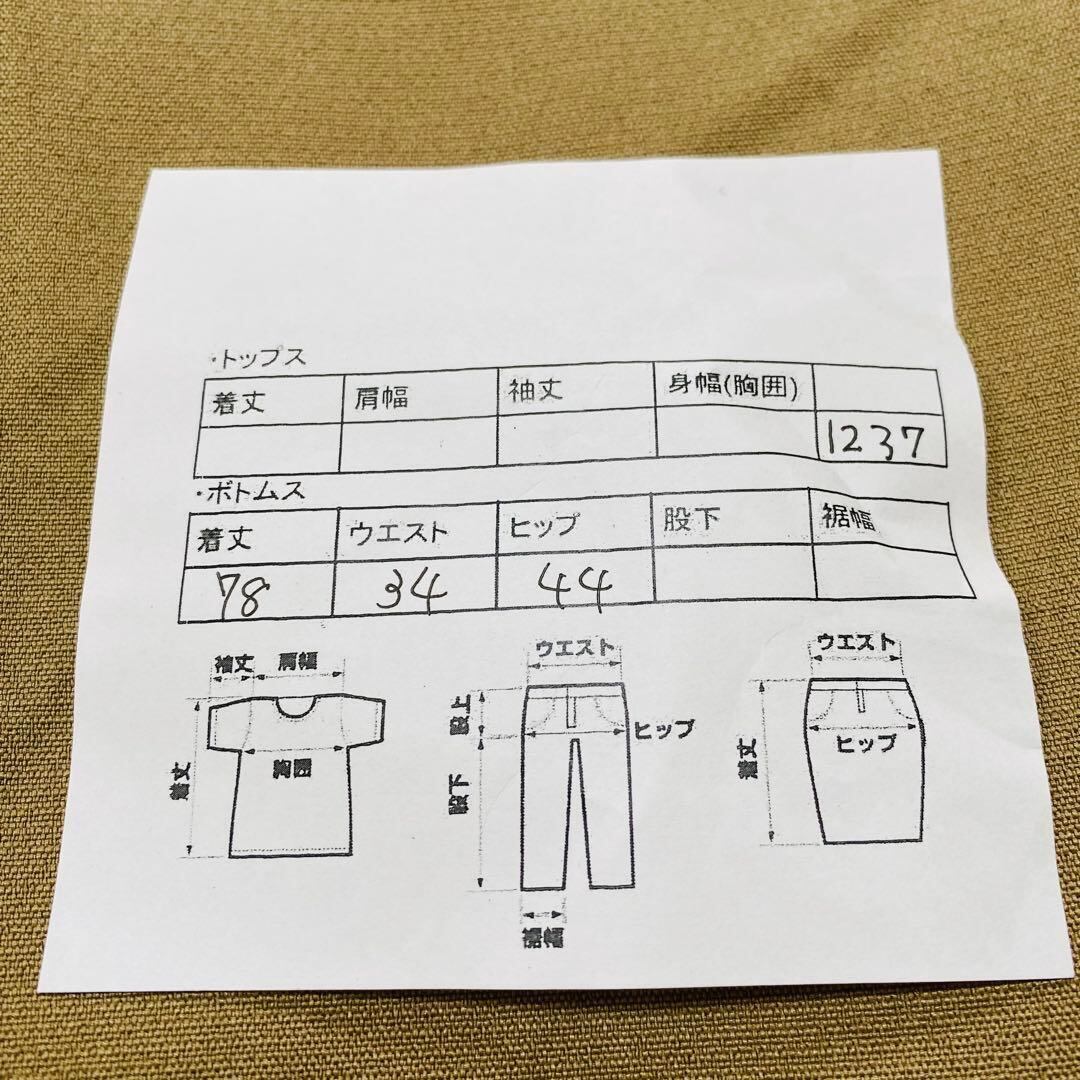 ・トップス
着丈 肩幅 袖丈 身幅(胸囲)
1237
・ボトムス
着丈 ウエスト ヒップ 股下 裾幅
78 34 44
袖丈 肩幅
胸囲
着丈
ウエスト
股上
ヒップ
股下
裾幅
ウエスト
ヒップ
着丈